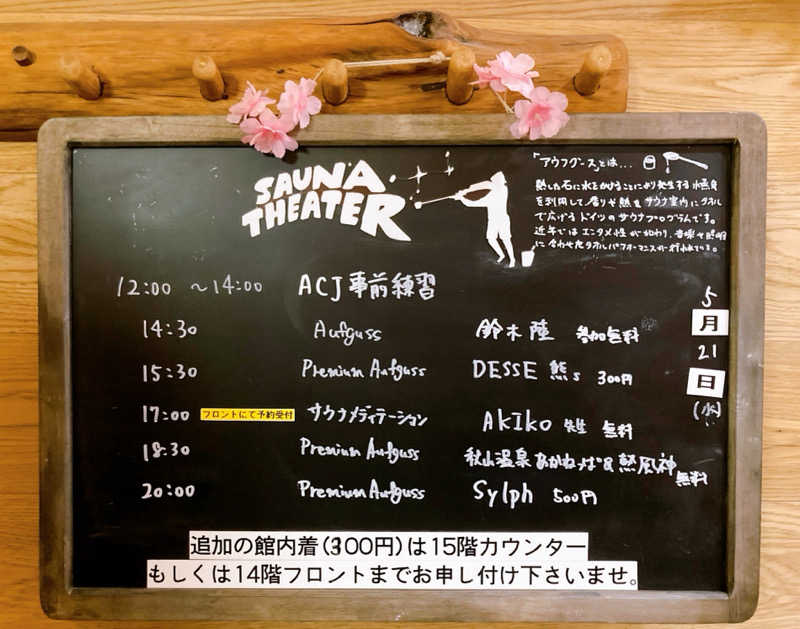 SAUNA
THEATER
「アウフグース」とは...
熱した石に水をかけることにより発生する水蒸気
を利用して香りや熱をサウナ室内にタオル
で広げるドイツのサウナプログラムです。
近年ではエンタメ性が加わり、音楽や照明
に合わせたタオルパフォーマンスが行われている。
12:00 ～14:00 ACJ 事前練習
14:30 Aufguss 鈴木陸 参加無料
15:30 Premium Aufguss DESSE 熊s 300円
17:00 フロントにて予約受付 サウナメディテーション AKiKo 先生 無料
18:30 Premium Aufguss 秋山温泉 あかねっぱ& 熱風神 無料
20:00 Premium Aufguss Sylph 500円
5
月
21
日
(水)
追加の館内着(300円)は15階カウンター
もしくは14階フロントまでお申し付け下さいませ。